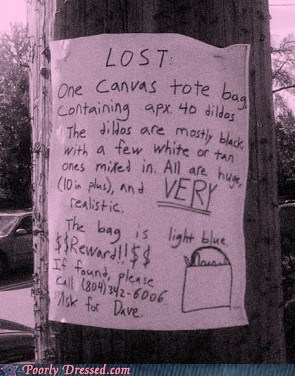 LOST:
One Canvas tote bag,
Containing apx. 40 dildos
The dildos are mostly black,
with a few white or tan
ones mixed in. All are huge,
(10 in plus), and VERY
realistic.
The bag is light blue
$$Reward!!$$
If found, please
call (804)342-6006
Ask for Dave
Poorly Dressed.com